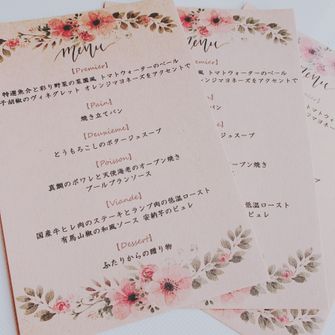 menu
【Premier】
特選魚介と彩り野菜の菜園風 トマトウォーターのベール
子胡椒のヴィネグレット オレンジマヨネーズをアクセントで
【Pain】
焼き立てパン
【Deuxieme】
とうもろこしのポタージュスープ
【Poisson】
真鯛のポワレと天使海老のオーブン焼き
ブールブランソース
【Viande】
国産牛ヒレ肉のステーキとランプ肉の低温ロースト
有馬山椒の和風ソース 安納芋のピュレ
【Dessert】
ふたりからの贈り物
menu
トマトウォーターのベール
ジマヨネーズをアクセントで
スープ
オーブン焼き
低温ロースト
ピュレ